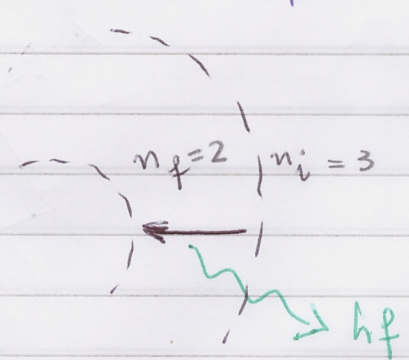 n_f = 2
n_i = 3
hf